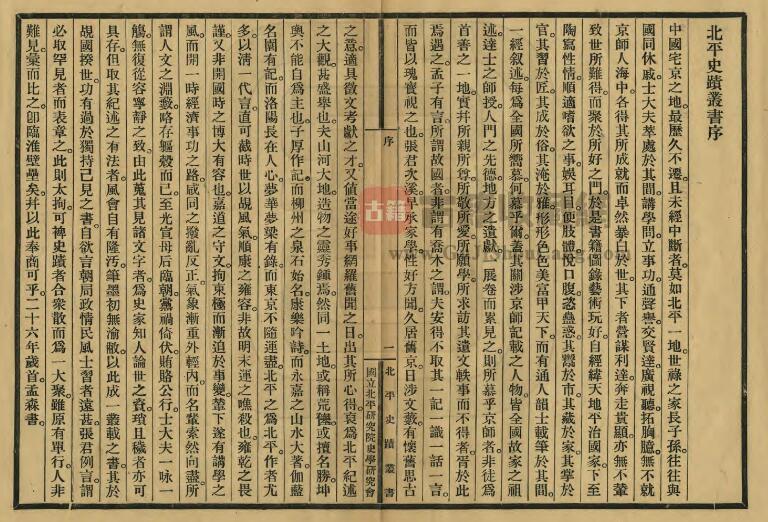 北平史蹟叢書序
中國宅京之地最歷久不遷且未經中斷者莫如北平一地世祿之家長子孫往往與
國同休戚士大夫萃處於其間講學問立事功通聲譽交賢達廣視聽拓胸臆無不就
京師人海中各得其所成就而卓然暴白於世其下者營謀利達奔走貴顯亦無不輦
致世所難得而聚於所好之門於是書籍圖錄藝術玩好自經緯天地平治國家下至
陶寫性情順適嗜欲之事娛耳目便肢體悅口腹恣蠱惑其鬻於市其藏於家其掌於
官其習於匠其成於俗其淹於雅形形色色美富甲天下而有通人韻士載筆於其間
一經叙述每爲全國所嚮慕何慕乎爾蓋其關涉京師記載之人物皆全國故家之祖
述達士之師授人門之先德地方之遺獻一展卷而累見之則所慕乎京師者非徒爲
首善之一地實幷所親所尊所敬所愛所願學所求訪其遺文軼事而不得者胥於此
焉遇之孟子有言所謂故國者非謂有喬木之謂夫安得不取其一記一識一話一言
而皆以瑰寶視之也張君次溪早承家學性好方聞久居舊京日涉文藪有懷舊思古
序
一
北平史蹟叢書
國立北平研究院史學研究會
之意適具徵文考獻之才又値當途好事網羅舊聞之日出其所心得裒爲北平紀述
之大觀甚盛舉也夫山河大地造物之靈秀鍾焉然同一土地或稱荒傖或擅名勝坤
輿不能自爲主也子厚作記而柳州之泉石始名康樂吟詩而永嘉之山水大著伽藍
名園有記而洛陽長在人心夢華夢粱有錄而東京不隨運盡北平之爲北平作者尤
多以淸一代言直可截時世以覘風氣順康之雍容非故明末運之噍殺也雍乾之畏
謹又非開國時之博大有容也嘉道之守文拘束極而漸迫於事變羣下遂有講學之
風而開一時經濟事功之路咸同之撥亂反正氣象漸重外輕內而名輩索然向盡所
謂人文之淵藪略存軀殼而已至光宣母后臨朝黨禍倚伏賄賂公行士大夫一咏一
觴無復從容寧靜之致由此蒐其見諸文字者爲史家知人論世之資瑣且穢者亦可
具存但取其紀述之有法者風會自有隆污筆墨初無渝敝以此成一叢載之書其於
覘國揆世功有過於獨持己見之書自欲言朝局政情民風士習者遠甚張君例言謂
必取罕見者而表章之此則太拘可裨史蹟者合衆散而爲一大聚雖原有單行人非
難見彙而比之卽臨淮壁壘矣幷以此奉商可乎二十六年歲首孟森書
古籍